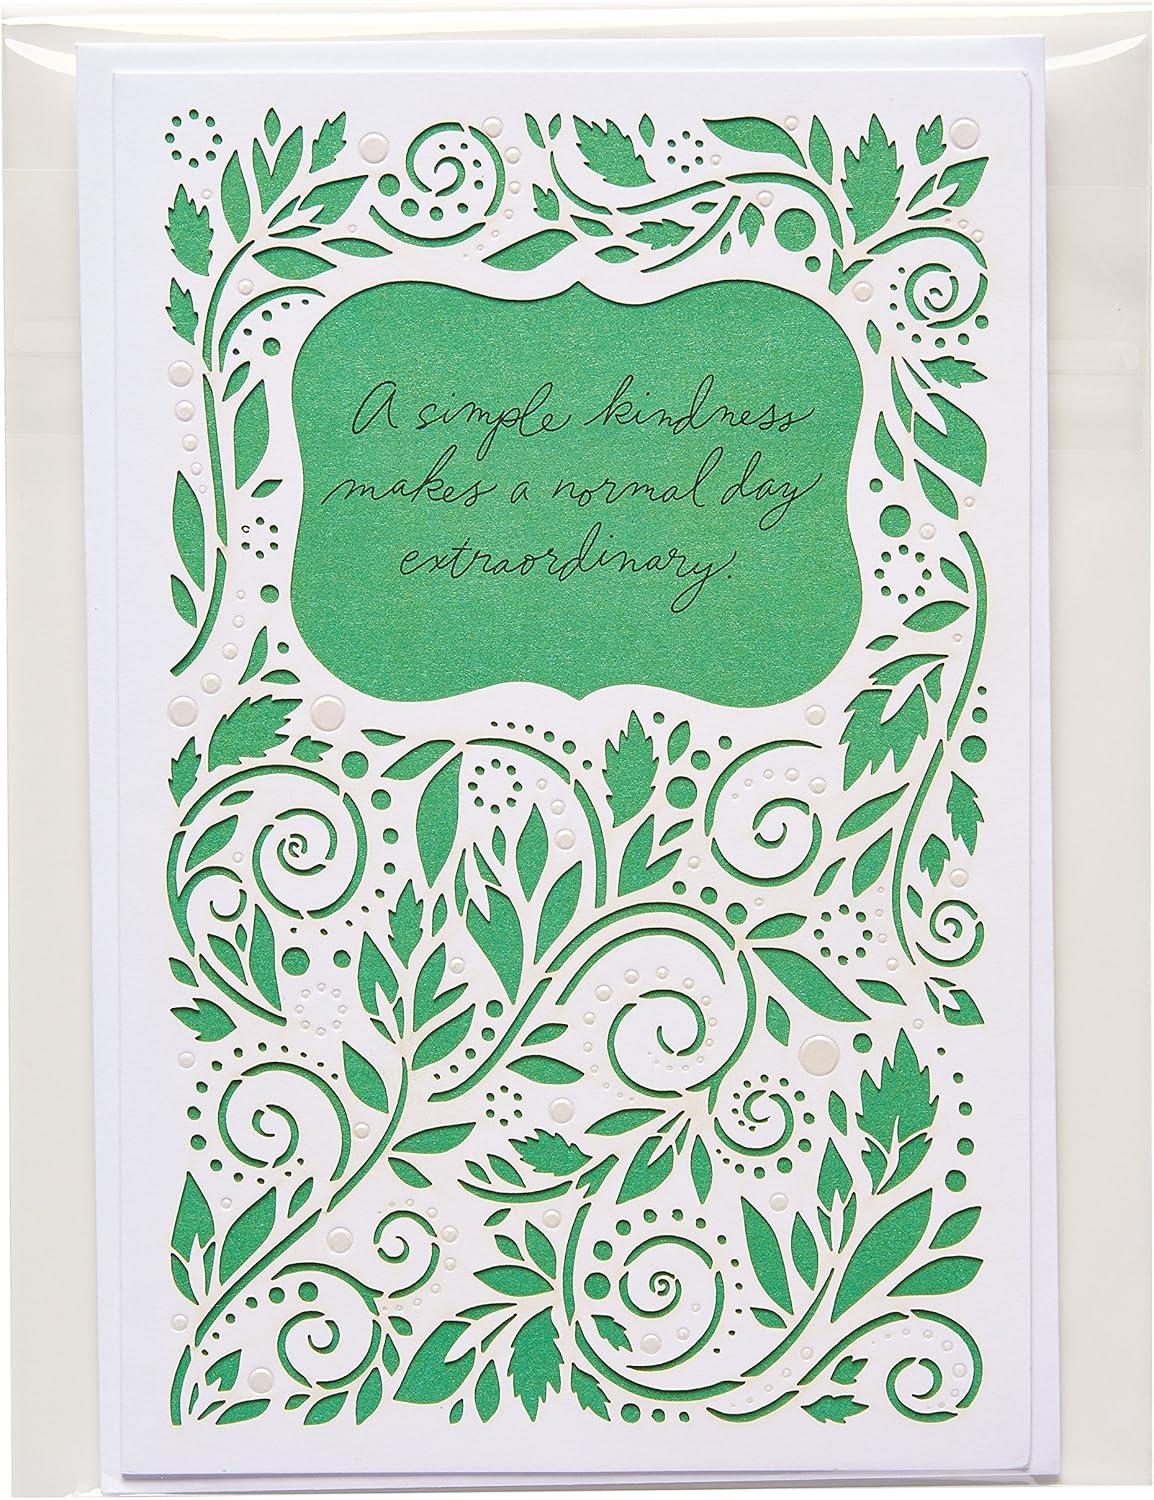 A simple kindness
makes a normal day
extraordinary.